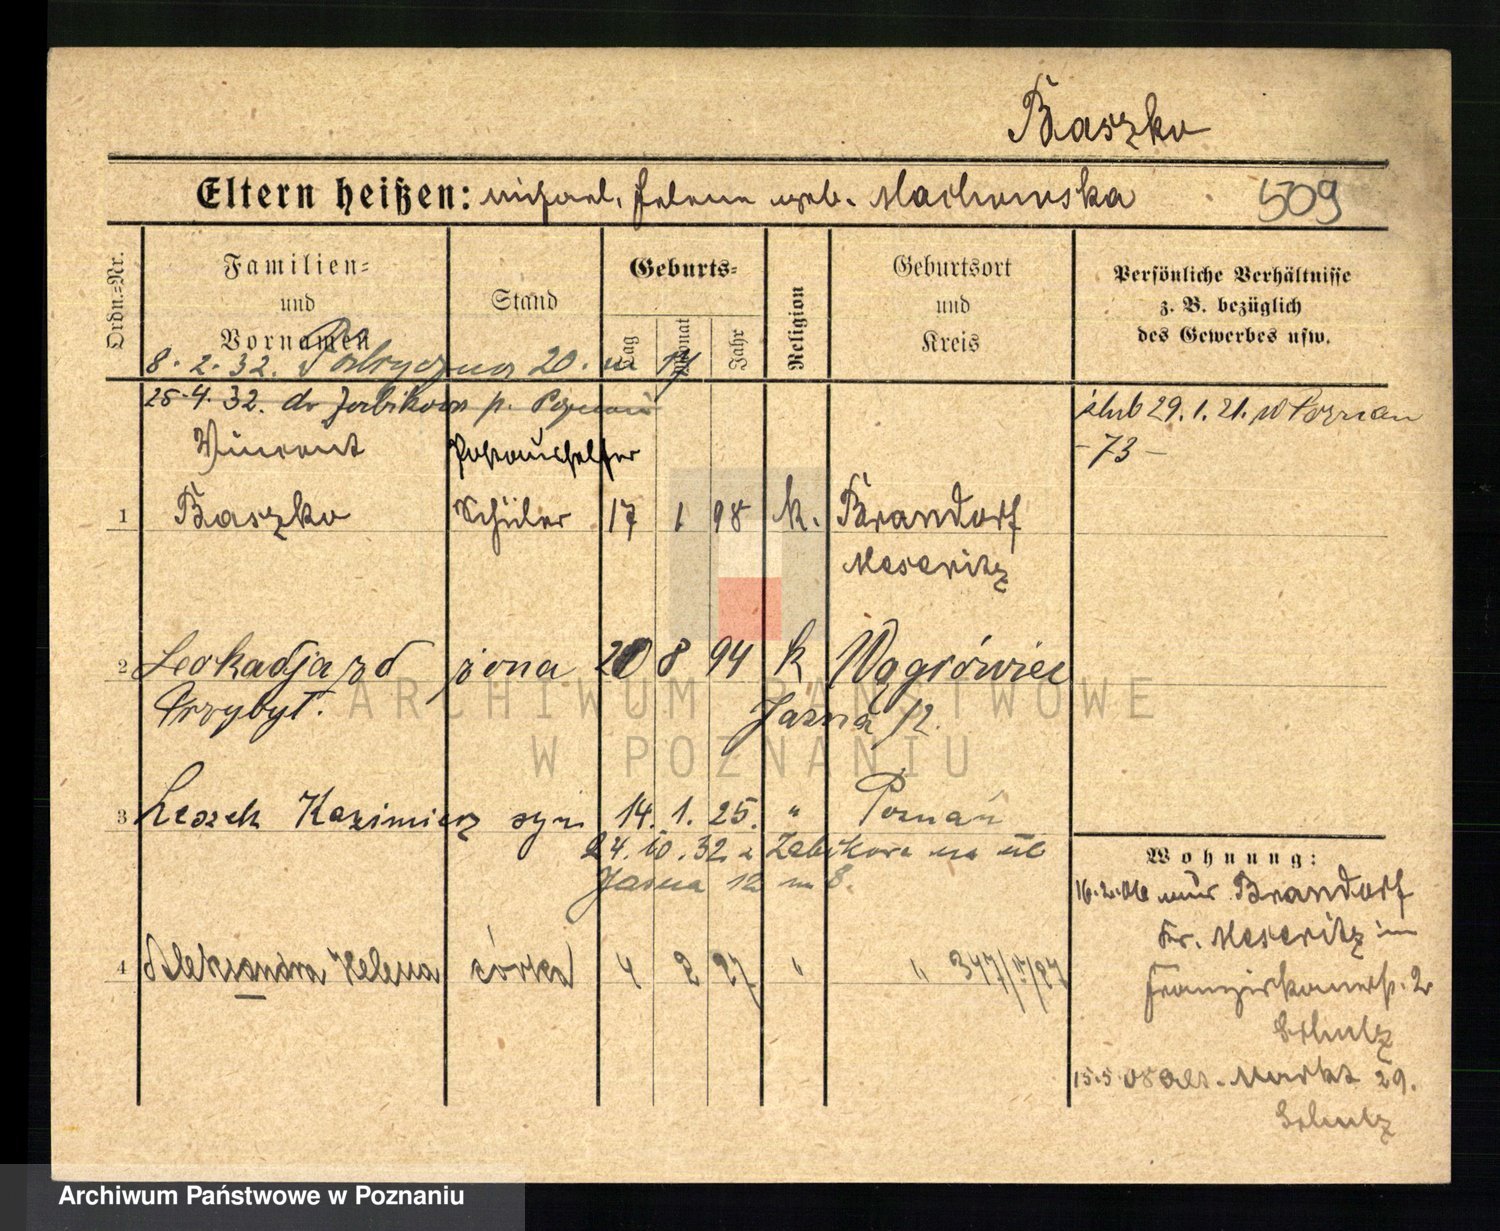 Baszko
Eltern heißen: Michael, Helene geb. Machowska 509
Ordn.=Nr.
Familien=
und
Vornamen
Stand
Geburts=
Tag
Monat
Jahr
Religion
Geburtsort
und
Kreis
Persönliche Verhältnisse
z. B. bezüglich
des Gewerbes usw.
8. 2. 32. Fabryczna 20. m 17
25. 4. 32. do Żabikowa p. Poznań
ślub 29. 1. 21. w Poznan
- 73 -
Vincent
1 Baszko Schüler 17 1 98 k. Brandorf
Meseritz
2 Leokadja zd żona 20 8 94 k Wągrówiec
Przybył. Jasna 12.
3 Leszek Kazimierz syn 14. 1. 25. " Poznań
24. 10. 32. z Zabikowa na ul
Jasna 12 m 8.
4 Aleksandra Helena córka 4 2 27 " "
Wohnung:
16.2.06 aus Brandorf
Kr. Meseritz in
Franziskanerstr. 2
Schulz
15.5.08 Alt. Markt 29.
Schulz
ARCHIWUM PAŃSTWOWE
W POZNANIU
Archiwum Państwowe w Poznaniu